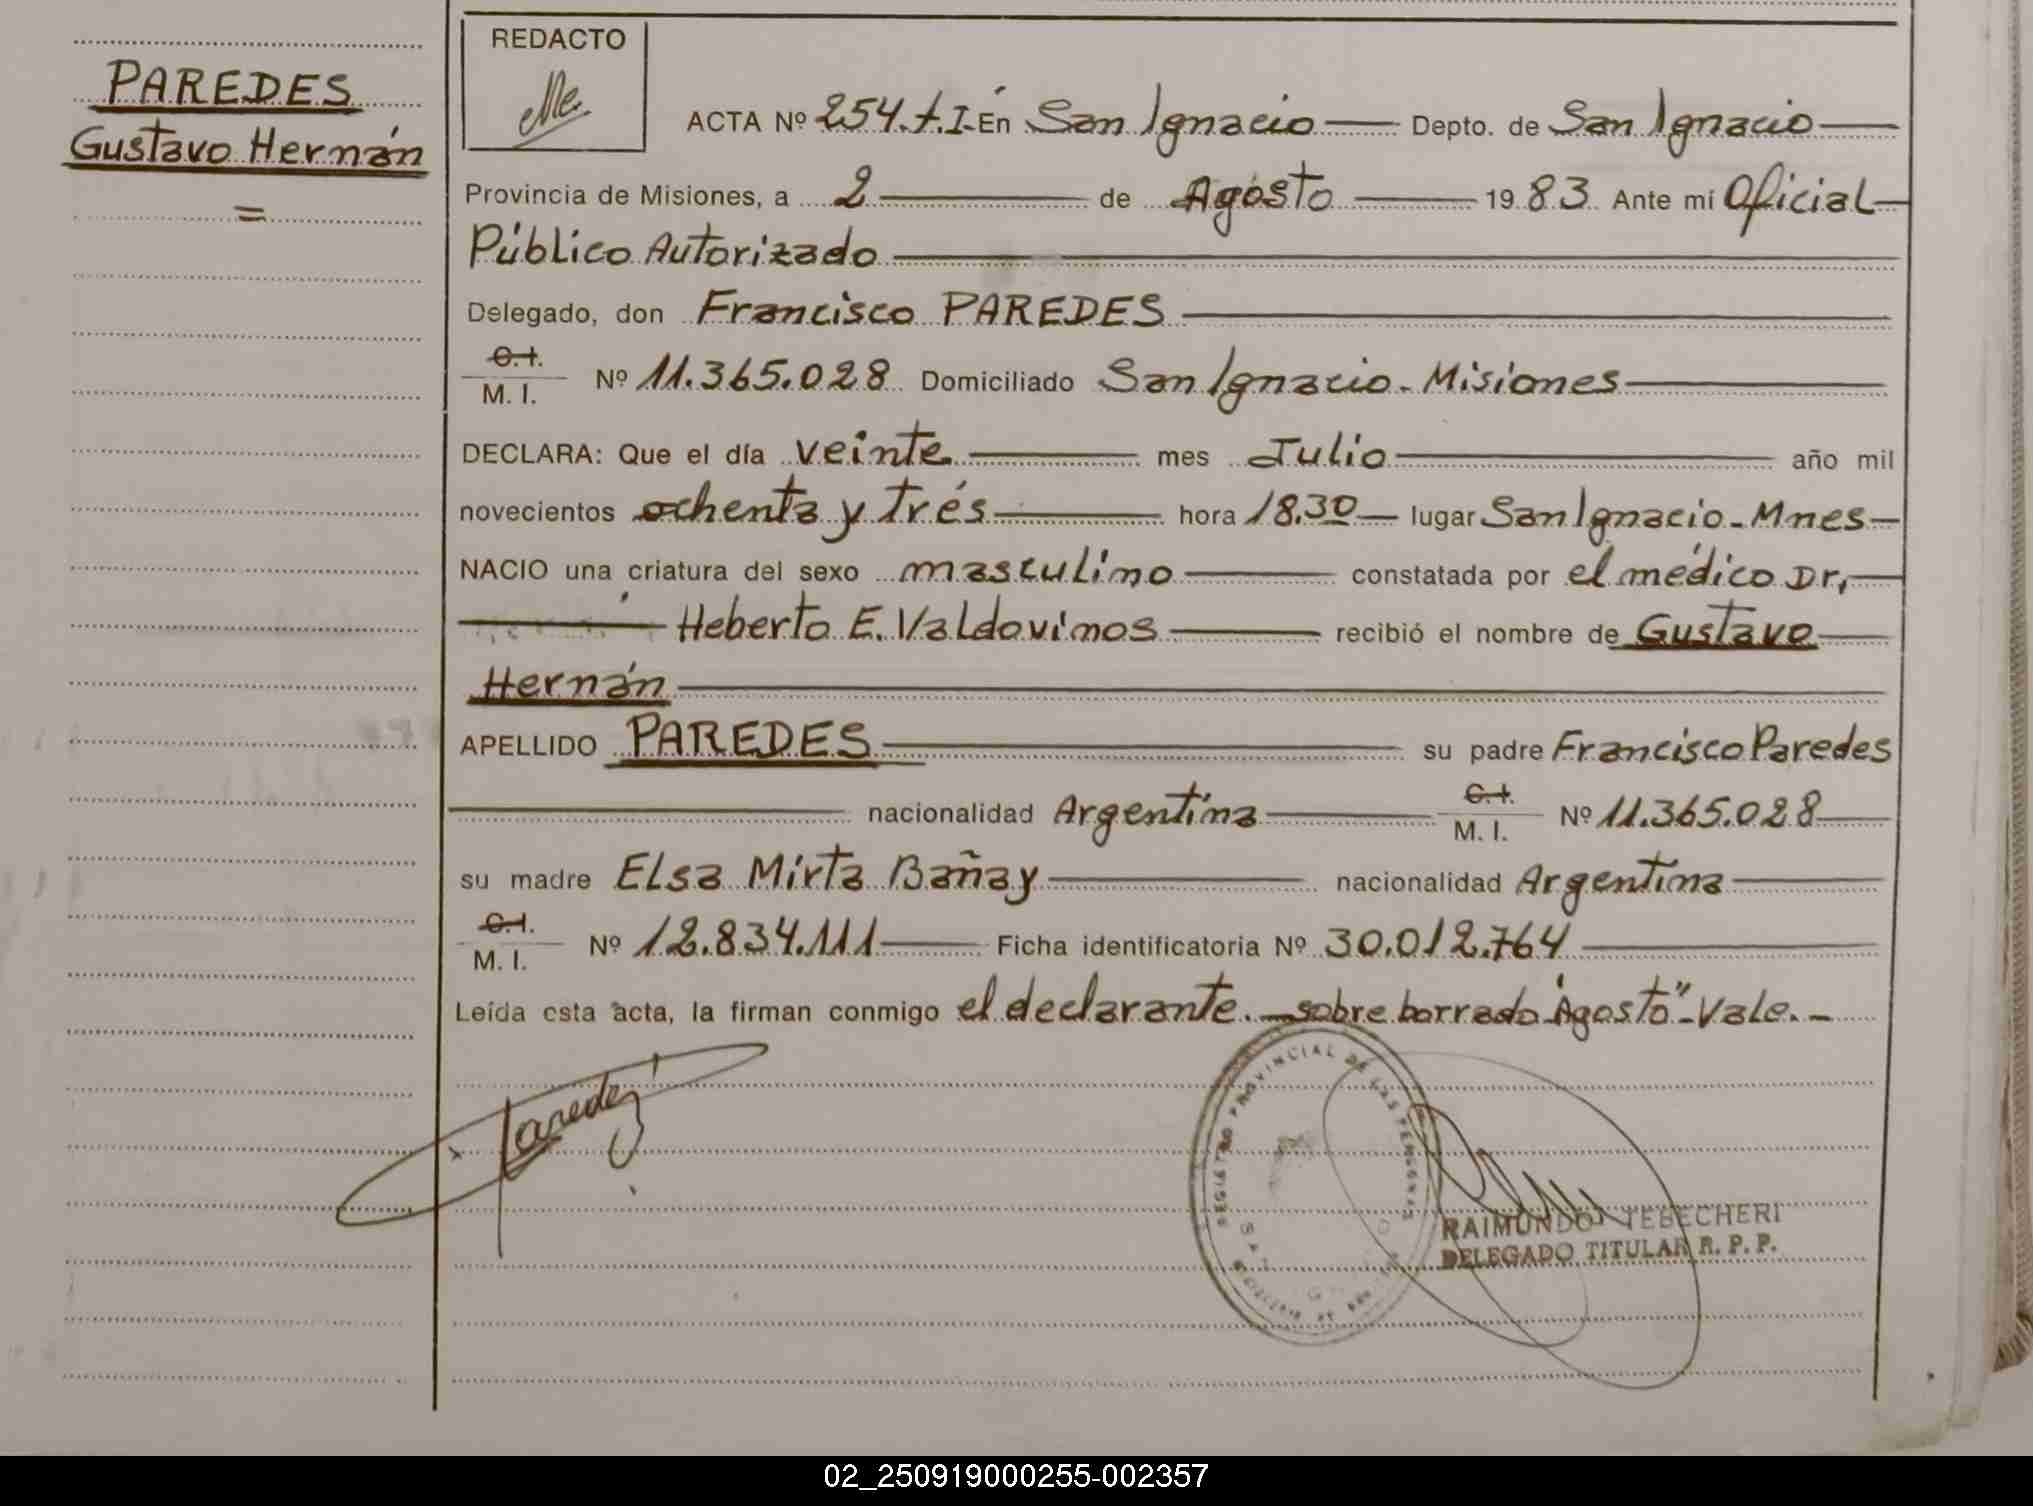 PAREDES
Gustavo Hernán
=
REDACTO
ACTA Nº 254.t.I-En San Ignacio Depto. de San Ignacio
Provincia de Misiones, a 2 de Agosto 1983 Ante mí Oficial
Público Autorizado
Delegado, don Francisco PAREDES
C.I.
M. I. Nº 11.365.028 Domiciliado San Ignacio - Misiones
DECLARA: Que el día veinte mes Julio año mil
novecientos ochenta y trés hora 18.30 lugar San Ignacio - Mnes
NACIO una criatura del sexo masculino constatada por el médico Dr,
Heberto E. Valdovinos recibió el nombre de Gustavo
Hernán
APELLIDO PAREDES su padre Francisco Paredes
nacionalidad Argentina C.I. M. I. Nº 11.365.028
su madre Elsa Mirta Bañay nacionalidad Argentina
C.I.
M. I. Nº 12.834.111 Ficha identificatoria Nº 30.012.764
Leída esta acta, la firman conmigo el declarante. - sobre borrado "Agosto" - Vale. -
Paredes
REGISTRO PROVINCIAL DE LAS PERSONAS
RAIMUNDO TEBECHERI
DELEGADO TITULAR R. P. P.
02_250919000255-002357